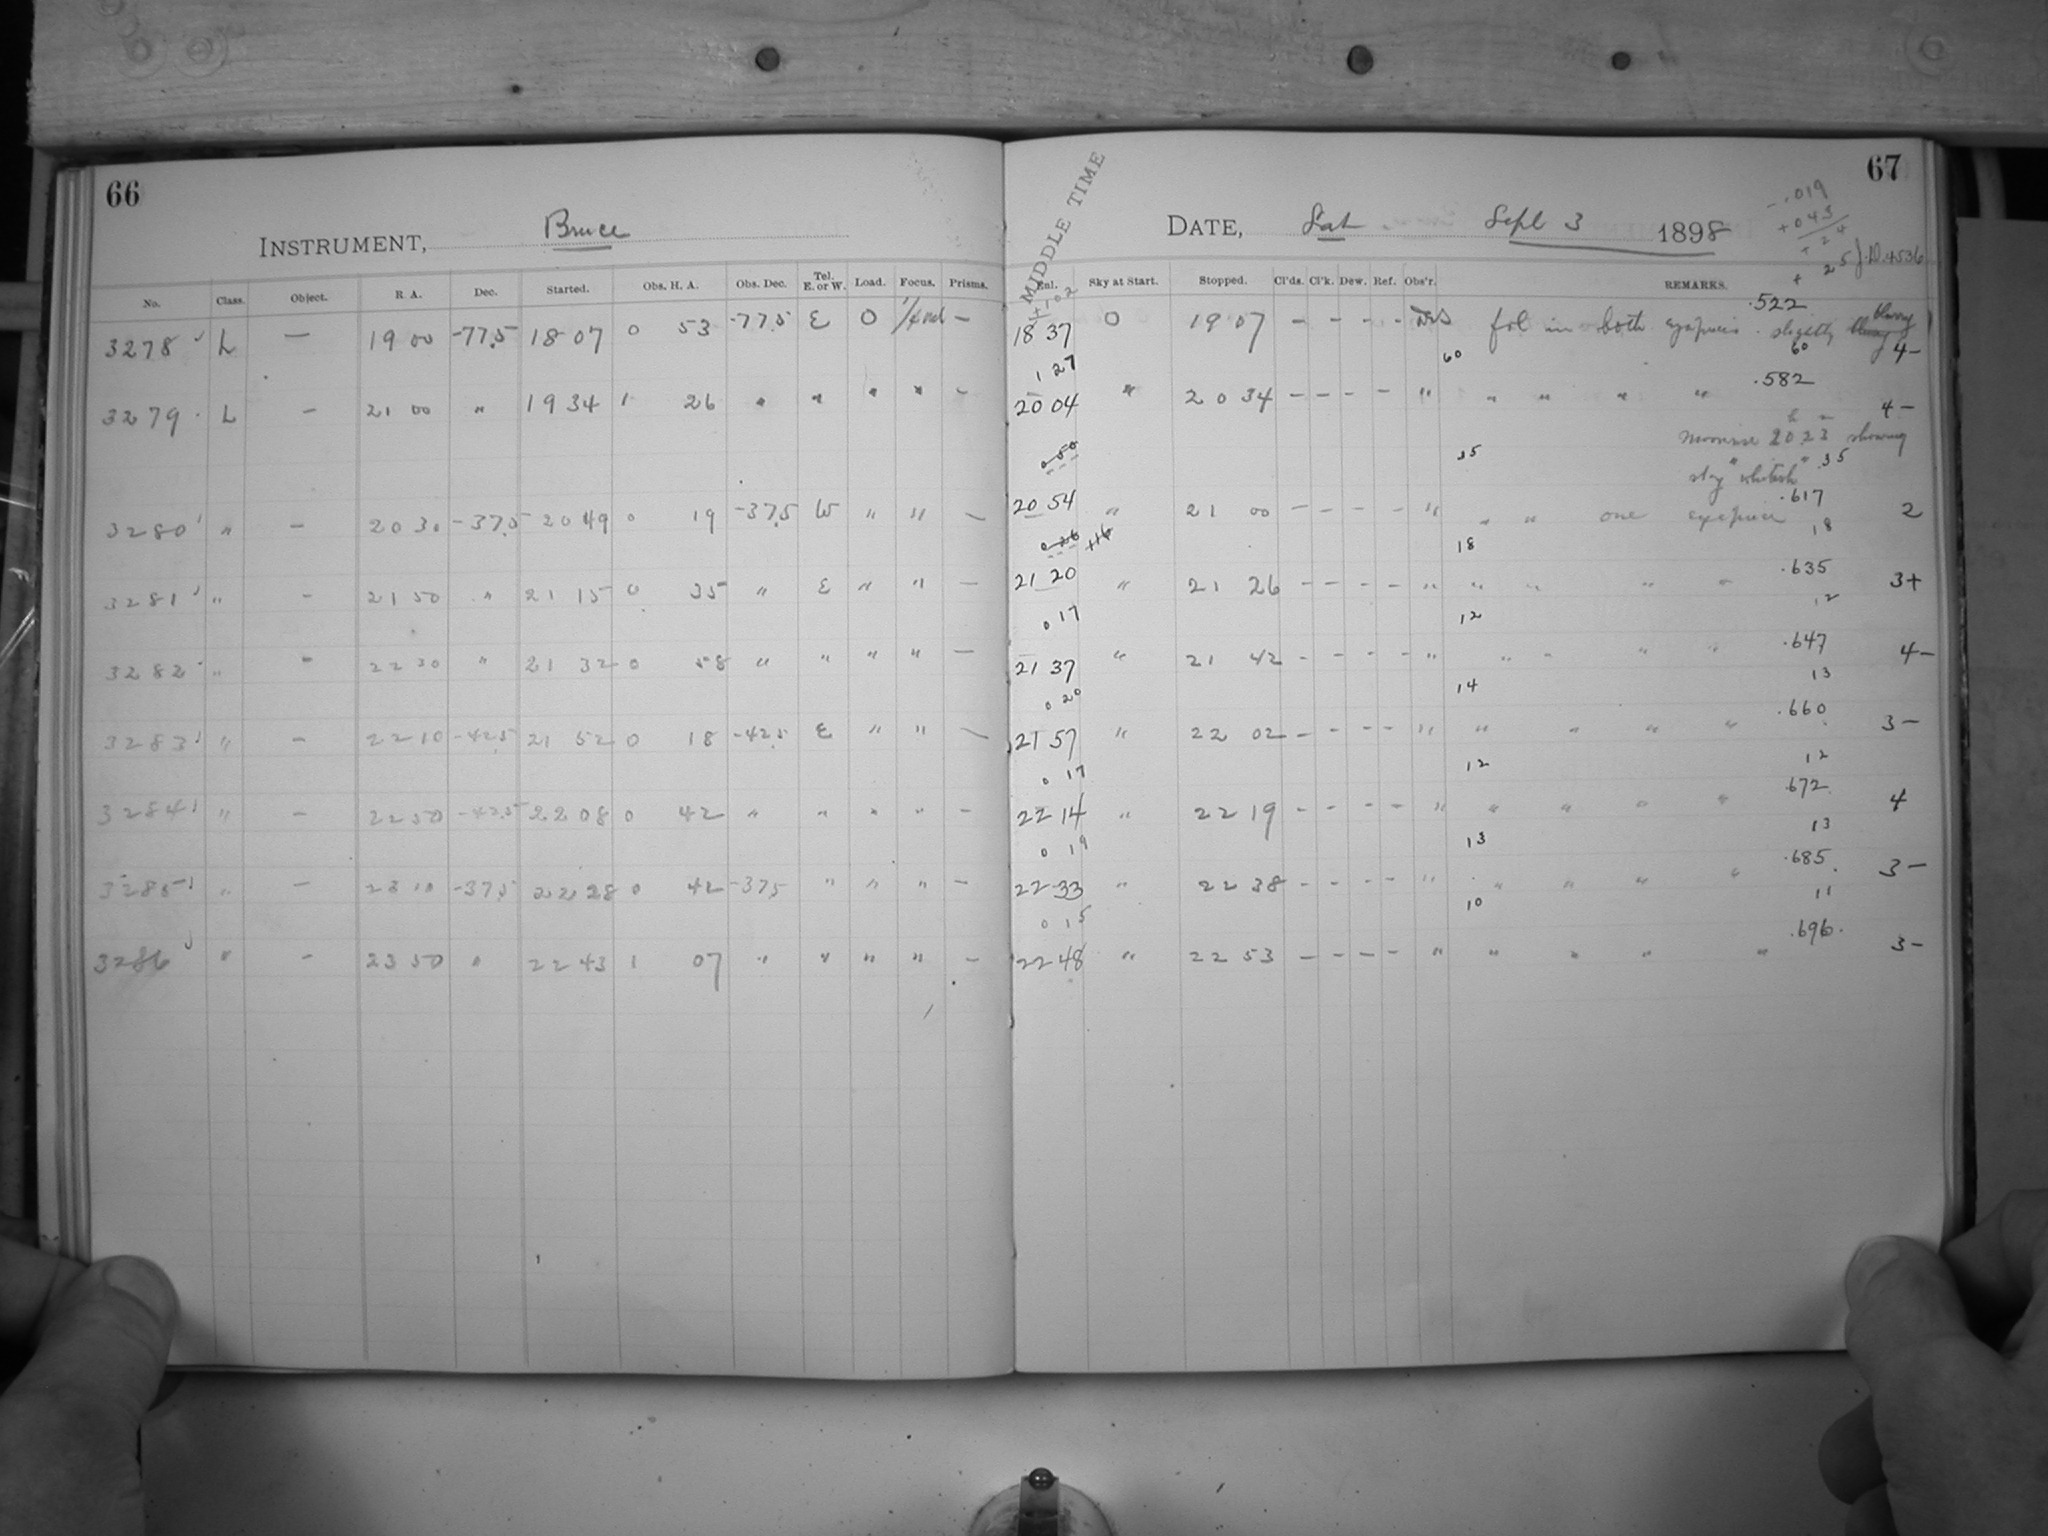 66
INSTRUMENT, Bruce
No. Class. Object. R. A. Dec. Started. Obs. H. A. Obs. Dec. Tel. E. or W. Load. Focus. Prisms.
3278 L — 19 00 -77.5 18 07 0 53 -77.5 E 0 —
3279 L — 21 00 " 19 34 1 26 " " " " —
3280 " — 20 30 -37.5 20 49 0 19 -37.5 W " " —
3281 " — 21 50 " 21 15 0 35 " E " " —
3282 " — 22 30 " 21 32 0 58 " " " " —
3283 " — 22 10 -42.5 21 52 0 18 -42.5 E " " —
3284 " — 22 50 -42.5 22 08 0 42 " " " " —
3285 " — 23 10 -37.5 22 28 0 42 -37.5 " " " —
3286 " — 23 50 " 22 43 1 07 " " " " —
67
MIDDLE TIME
DATE, Sat Sept 3 1898
-.019
+043
+24
+25 J.D. 4536
Enl. Sky at Start. Stopped. Cl'ds. Cl'k. Dew. Ref. Obs'r. REMARKS.
+102
.522
18 37 0 19 07 — — — — fol in both eyepieces. slightly blurry
60 60 4-
1 27
.582
20 04 " 20 34 — — — — " " " " " 4-
Moonrise 20h 23m showing
0 50 35 sky "whitish" 35
.617
20 54 " 21 00 — — — — " " " one eyepiece 2
0 26 +16 18 18
.635
21 20 " 21 26 — — — — " " " " " 3+
0 17 12 12
.647
21 37 " 21 42 — — — — " " " " " 4-
0 20 14 13
.660
21 57 " 22 02 — — — — " " " " " 3-
0 17 12 12
.672
22 14 " 22 19 — — — — " " " " " 4
0 19 13 13
.685
22 33 " 22 38 — — — — " " " " " 3-
0 15 10 11
.696
22 48 " 22 53 — — — — " " " " " 3-